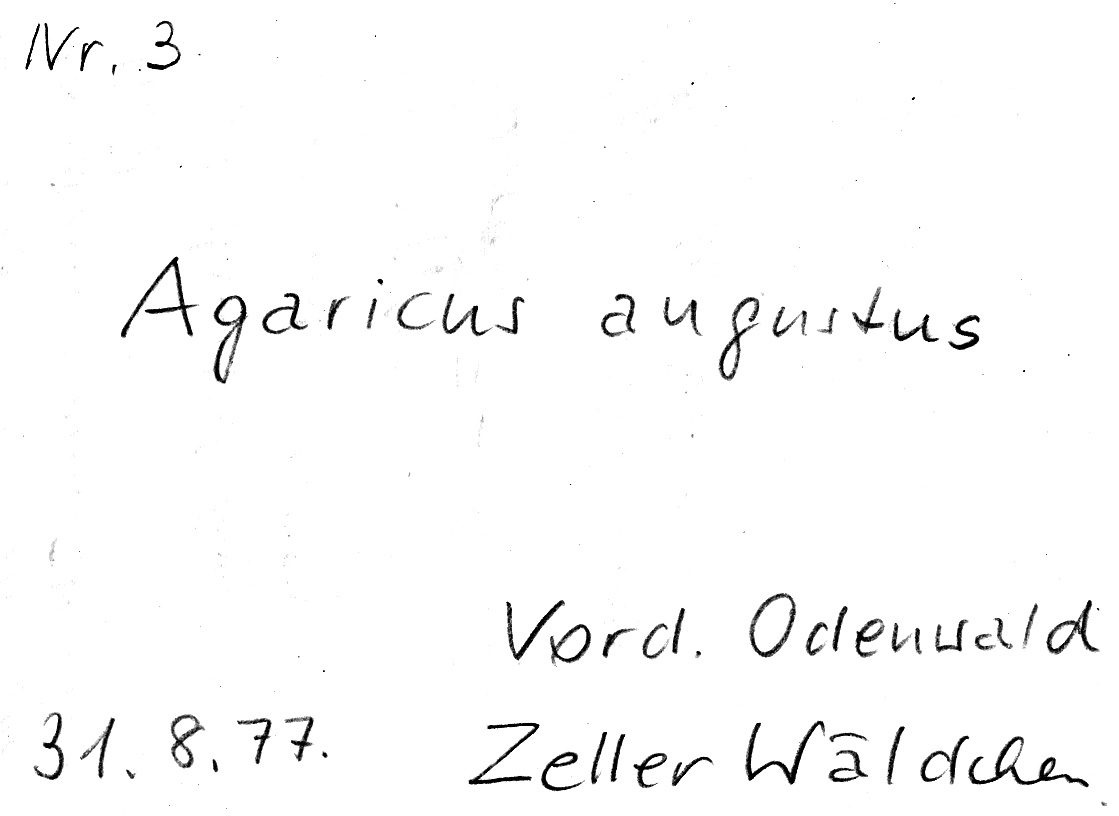 Nr. 3
Agaricus augustus
Vord. Odenwald
31.8.77. Zeller Wäldchen